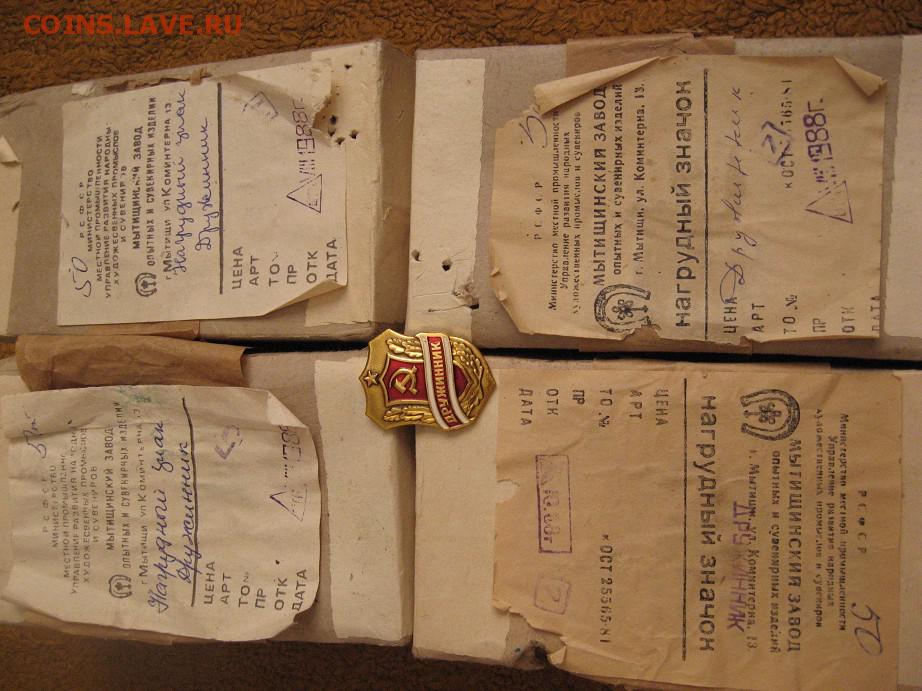 COINS.LAVE.RU
50
Р С Ф С Р
МИНИСТЕРСТВО
МЕСТНОЙ ПРОМЫШЛЕННОСТИ
УПРАВЛЕНИЕ РАЗВИТИЯ НАРОДНЫ
ХУДОЖЕСВЕННЫХ ПРОМЫСЛОВ
И СУВЕНИРОВ
МЫТИЩИНСКИЙ ЗАВОД
ОПЫТНЫХ И СУВЕНИРНЫХ ИЗДЕЛИЙ
г. Мытищи ул Коминтерна 13
Нагрудный знак
Дружинник
ЦЕНА
АРТ
ТО
ПР
ОТК
ДАТА
VIII 1988г.
Р С Ф С Р
Министерство местной промышленности
Управление развития народных
художественных промыслов и сувениров
МЫТИЩИНСКИЙ ЗАВОД
опытных и сувенирных изделий
г. Мытищи, ул. Коминтерна, 13.
нагрудный значок
ЦЕНА Дружинник
АРТ
ТО №
ПР
ОТК
ДАТА
VIII 1988г.
ДРУЖИННИК
Р С Ф С Р
МИНИСТЕРСТВО
МЕСТНОЙ ПРОМЫШЛЕН
УПРАВЛЕНИЕ РАЗВИТИЯ НА
ХУДОЖЕСВЕННЫХ ПРОМЫСЛО
И СУВЕНИРОВ
МЫТИЩИНСКИЙ ЗАВОД
ОПЫТНЫХ И СУВЕНИРНЫХ ИЗДЕЛИИ
г. Мытищи ул Коминтерна
Нагрудный знак
Дружинник
ЦЕНА
АРТ
ТО №
ПР
ОТК
ДАТА
50
Р С Ф С Р
Министерство местной промышленности
Управление развития народных
художественных промыслов и сувениров
МЫТИЩИНСКИЙ ЗАВОД
опытных и сувенирных изделий
г. Мытищи, ул. Коминтерна, 13
ДРУЖИННИК
нагрудный значок
ЦЕНА
АРТ
ТО №
ПР
ОТК
ДАТА
к ОСТ 25565-81
2